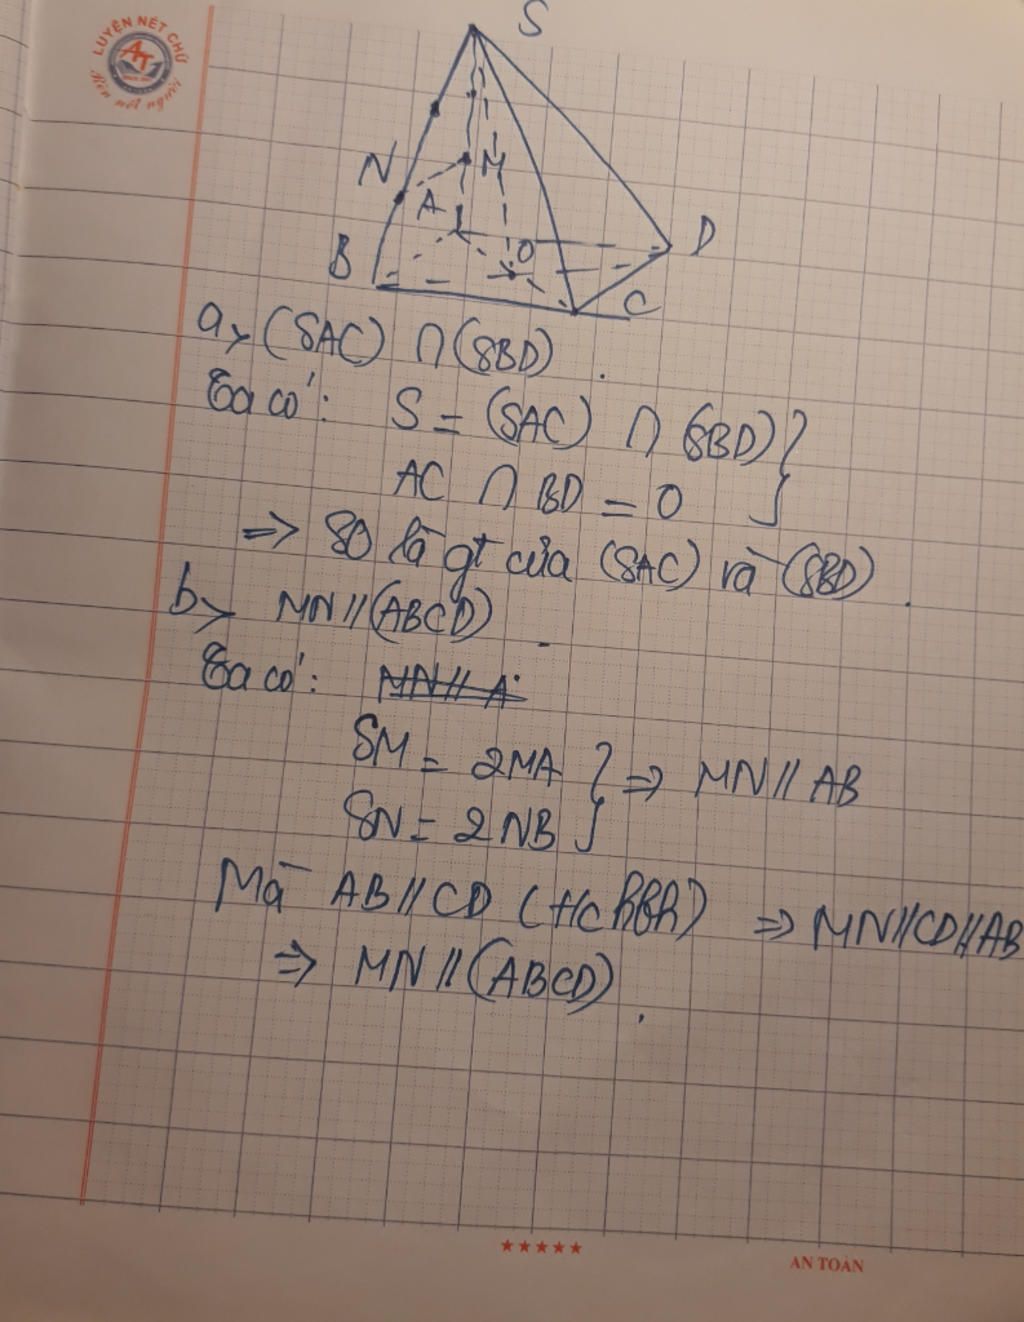 LUYỆN NÉT CHỮ
AT
Rèn nết người
S
N
M
A
D
B
O
C
a, (SAC) ∩ (SBD).
Ta có: S = (SAC) ∩ (SBD) }
AC ∩ BD = O
=> SO là gt của (SAC) và (SBD).
b, MN // (ABCD)
Ta có: MN // A
SM = 2MA } => MN // AB
SN = 2NB
Mà AB // CD (HcBBH) => MN//CD//AB
=> MN // (ABCD).
★★★★★
AN TOÀN